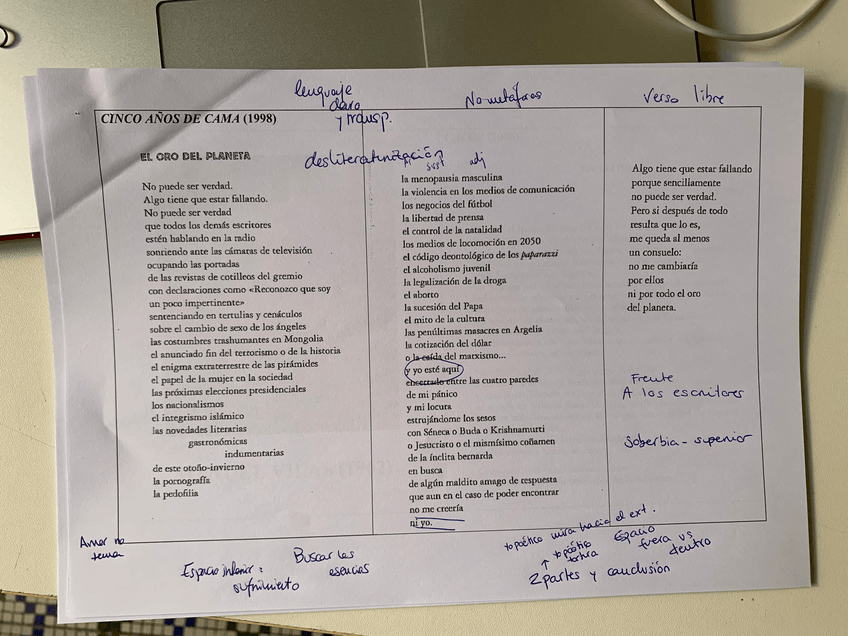 lenguaje
claro
y transp.
No metáforas
Verso libre
CINCO AÑOS DE CAMA (1998)
desliteraturización
sust adj
EL ORO DEL PLANETA
No puede ser verdad.
Algo tiene que estar fallando.
No puede ser verdad
que todos los demás escritores
estén hablando en la radio
sonriendo ante las cámaras de televisión
ocupando las portadas
de las revistas de cotilleos del gremio
con declaraciones como «Reconozco que soy
un poco impertinente»
sentenciando en tertulias y cenáculos
sobre el cambio de sexo de los ángeles
las costumbres trashumantes en Mongolia
el anunciado fin del terrorismo o de la historia
el enigma extraterrestre de las pirámides
el papel de la mujer en la sociedad
las próximas elecciones presidenciales
los nacionalismos
el integrismo islámico
las novedades literarias
gastronómicas
indumentarias
de este otoño-invierno
la pornografía
la pedofilia
la menopausia masculina
la violencia en los medios de comunicación
los negocios del fútbol
la libertad de prensa
el control de la natalidad
los medios de locomoción en 2050
el código deontológico de los paparazzi
el alcoholismo juvenil
la legalización de la droga
el aborto
la sucesión del Papa
el mito de la cultura
las penúltimas masacres en Argelia
la cotización del dólar
o la caída del marxismo...
y yo esté aquí
encerrado entre las cuatro paredes
de mi pánico
y mi locura
estrujándome los sesos
con Séneca o Buda o Krishnamurti
o Jesucristo o el mismísimo coñamen
de la ínclita bernarda
en busca
de algún maldito amago de respuesta
que aun en el caso de poder encontrar
no me creería
ni yo.
Algo tiene que estar fallando
porque sencillamente
no puede ser verdad.
Pero si después de todo
resulta que lo es,
me queda al menos
un consuelo:
no me cambiaría
por ellos
ni por todo el oro
del planeta.
Frente
A los escritores
Soberbia - superior
Amor no
tema
Espacio interior:
sufrimiento
Buscar las
esencias
yo poético mira hacia el ext.
↑ yo poético
tortura
Espacio
fuera vs
dentro
2 partes y conclusión